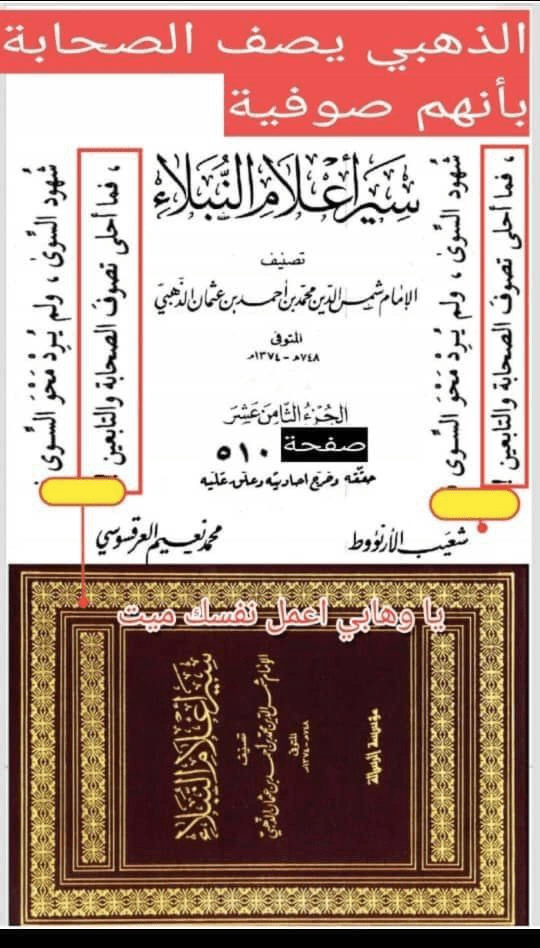 الذهبي يصف الصحابة
بأنهم صوفية
، فما أحلى تصوفَ الصحابة والتابعين !
شُهود السِّوىٰ ، ولم يُرِدْ مَحْوَ السِّوى
سير أعلام النبلاء
تصنيف
الإمام شمس الدين محمد بن أحمد بن عثمان الذهبي
المتوفى
٧٤٨هـ - ١٣٧٤م
الجزء الثامن عشر
صفحة ٥١٠
حققه وخرج أحاديثه وعلق عليه
شعيب الأرنؤوط
محمد نعيم العرقسوسي
شُهود السِّوىٰ ، ولم يُرِدْ مَحْوَ السِّوى
، فما أحلى تصوفَ الصحابة والتابعين !
يا وهابي اعمل نفسك ميت
سير أعلام النبلاء
تصنيف
الإمام شمس الدين محمد بن أحمد بن عثمان الذهبي
المتوفى
٧٤٨هـ - ١٣٧٤م
مؤسسة الرسالة